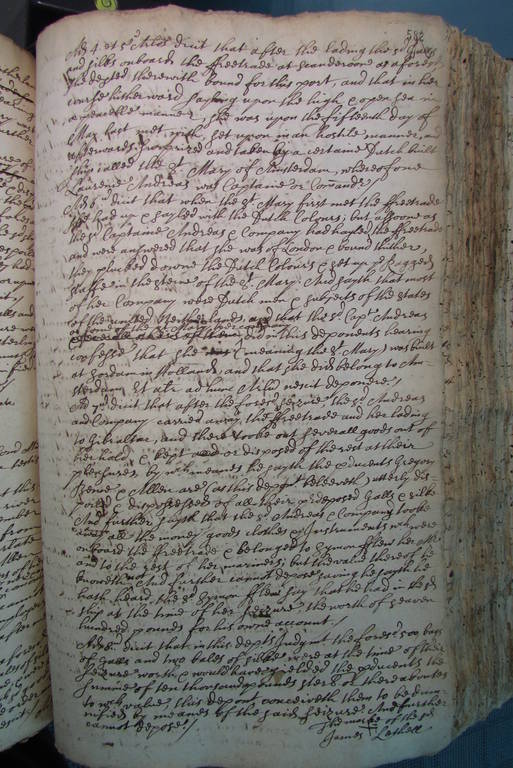 582
Ad 4. et 5. Arlos dicit that after the lading the sd Galls
and silks onboard the ffreetrade at Scanderoone as aforesd
she depted therewith bound for this port, and that in her
course hitherward sayling upon the high & open sea in
a peaceable manner, she was upon the fifteenth day of
May last met with, set upon in an hostile manner, and
afterwards surprized and taken by a certaine Dutch built
ship called the St Mary of Amsterdam, whereof one
Laurence Andreas was Captaine or Comander./
Ad 6. dicit that when the St. Mary first met the ffreetrade
she had up & sayled with the Dutch Colours; but assoone as
the sd Captaine Andreas & Company had hayled the ffreetrade
and were answered that she was of London & bound thither,
they plucked downe the Dutch Colours & set up ye Ragged
staffe in the sterne of the St. Mary. And sayth that most
of her Company were Dutch men & subjects of the States
of the united Neitherlands, and that the sd Capt Andreas
did in this deponents hearing
confesse that she (meaning the St Mary) was built
at Hordam in Holland, and that she did belong to Am-
sterdam Et aliter ad hunc Arlum nescit deponere./
Ad 7. dicit that after the foresd seizure the sd Andreas
and Company carried away the ffreetrade and her lading
to Gibraltar, and there tooke out severall goods out of
her hold & kept or disposed of the rest at their
pleasures by wch meanes he sayth the producents Gregory
& Allen are (as this depot beleeveth) utterly dis-
& dispossessed of all their predeposed Galls & silke
And further sayth that the sd Andreas & Company tooke
away all the money goods clothes & Instruments wch were
onboard the ffreetrade & belonged to Symon fflew her Mr
and to the rest of her mariners; but the value thereof he
knoweth not And further cannot depose saving he sayth he
hath heard the sd Symon fflew say that he had in the sd
ship at the time of her seizure the worth of seaven
hundred pounds for his owne account./
Ad 8. dicit that in this depts Judgmt the foresd 500 bags
of Galls and two bales of silke were at the time of their
seizure worth & would have yielded the producents the
summe of ten thousand pounds ster or thereabouts
to wch value this depont conceiveth them to be dam-
nified by meanes of the said seizure And further
cannot depose./
The marke of the sd
James Lashell